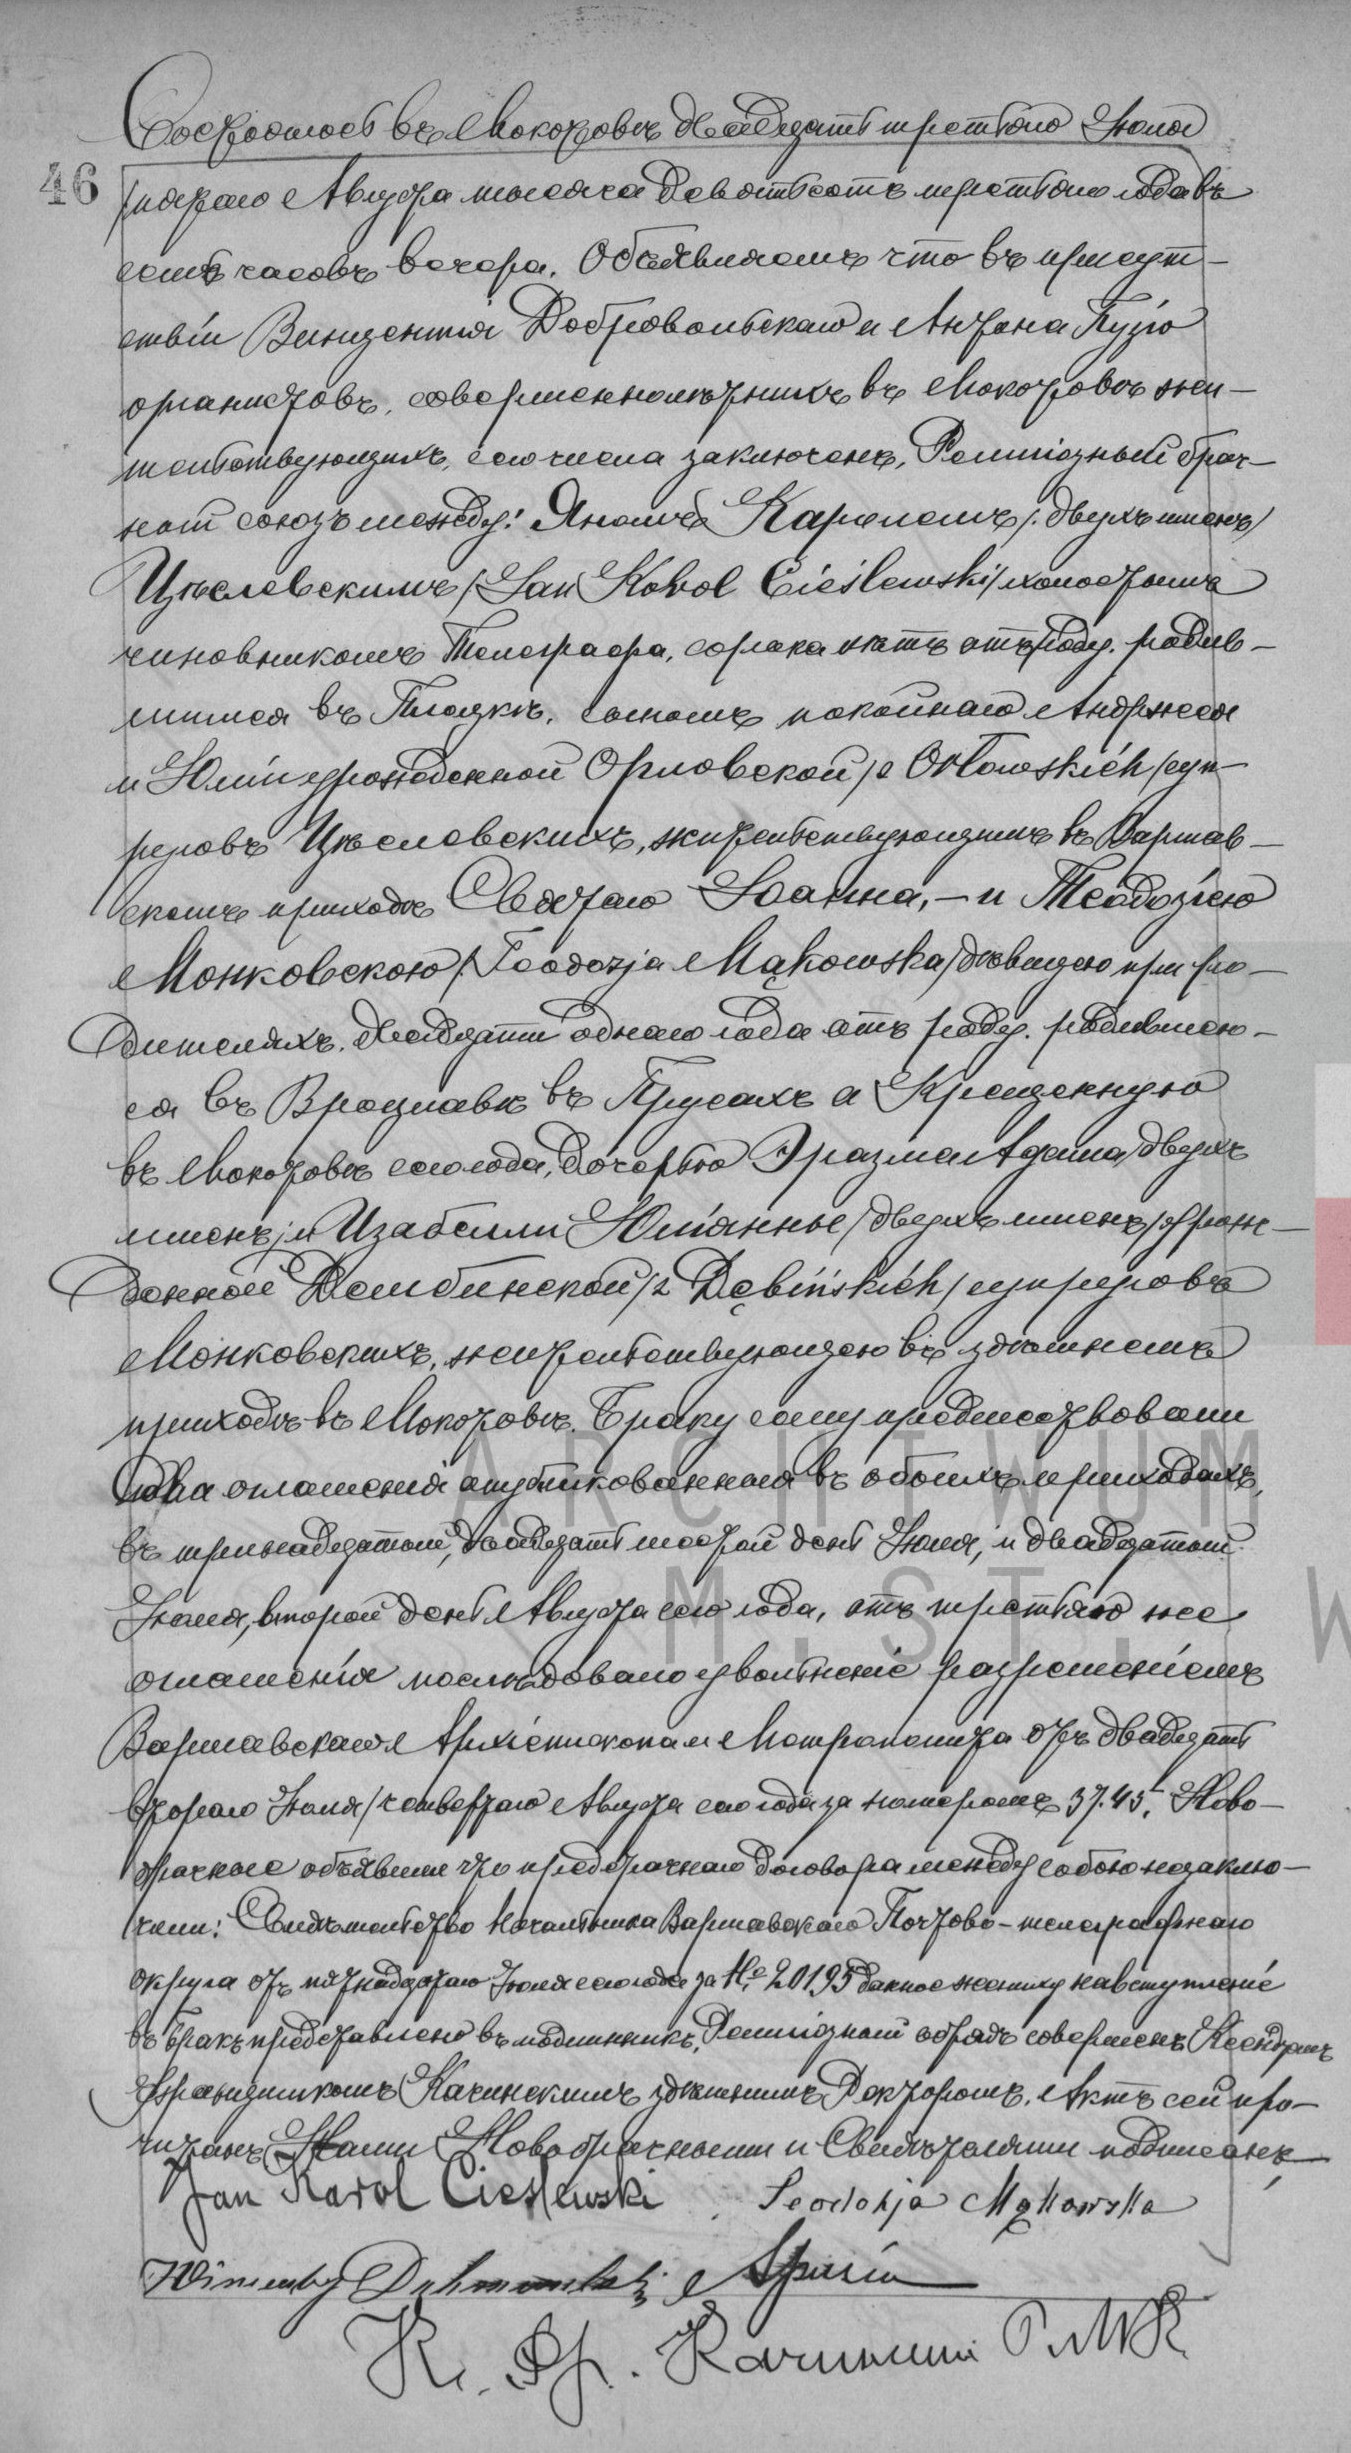 Состоялось въ Мокотовѣ двадцать третьяго Іюля
46
/пятаго Августа тысяча девятьсотъ третьяго года въ
семь часовъ вечера. Объявляемъ что въ присут-
ствіи Винцентія Добровольскаго и Антона Пузіо
органистовъ, совершеннолѣтнихъ въ Мокотовѣ жи-
тельствующихъ, сего числа заключенъ, Религіозный брач-
ный союзъ между: Яномъ Каролемъ /: двухъ именъ/
Цѣслевскимъ /Jan Karol Cieślewski/ холостымъ
чиновникомъ Телеграфа, сорока лѣтъ отъ роду. родив-
шимся въ Плоцкѣ, сыномъ покойнаго Андржея
и Юліи урожденной Орловской /z Orłowskich/ суп-
руговъ Цѣслевскихъ, жительствующимъ въ Варшав-
скомъ приходѣ Святаго Іоанна, - и Теодозіею
Монковскою /Teodozja Mąkowska/ дѣвицею при ро-
дителяхъ. двадцати одного года отъ роду. родившею-
ся въ Вроцлавѣ въ Прусахъ а Крещенную
въ Мокотовѣ сего года, дочерью Эразма Адама /двухъ
именъ/ и Изабелли Юліанны /двухъ именъ/ урож-
денной Дембинской /z Dębińskich/ супруговъ
Монковскихъ, жительствующею въ здѣшнемъ
приходѣ въ Мокотовѣ. Браку сему предшествовали
два оглашенія опубликованныя въ обоихъ приходахъ,
въ тринадцатый, двадцать шестой день Іюля, и двадцатый
Іюля, второй день Августа сего года, отъ третьяго же
оглашенія послѣдовало увольненіе разрешеніемъ
Варшавскаго Архіепископа Митрополита отъ двадцать
втораго Іюля /четвертаго Августа сего года за номеромъ 3745, Ново-
брачные объявили что предбрачнаго договора между собою незаклю-
чили: Свидѣтельство Начальника Варшавскаго Почтово-телеграфнаго
округа отъ пятнадцатаго Іюля сего года за № 20195 данное жениху на вступленіе
въ бракъ представлено въ подлинникѣ, Религіозный обрядъ совершенъ Ксендзомъ
Францишкомъ Качинскимъ здѣшнимъ Ректоромъ. Актъ сей про-
читанъ Нами Новобрачными и Свидѣтелями подписанъ
Jan Karol Cieślewski Teodozja Mąkowska
Wincenty Dobrowolski A Puzio
К. Фр. Качинскій Р.М.К.